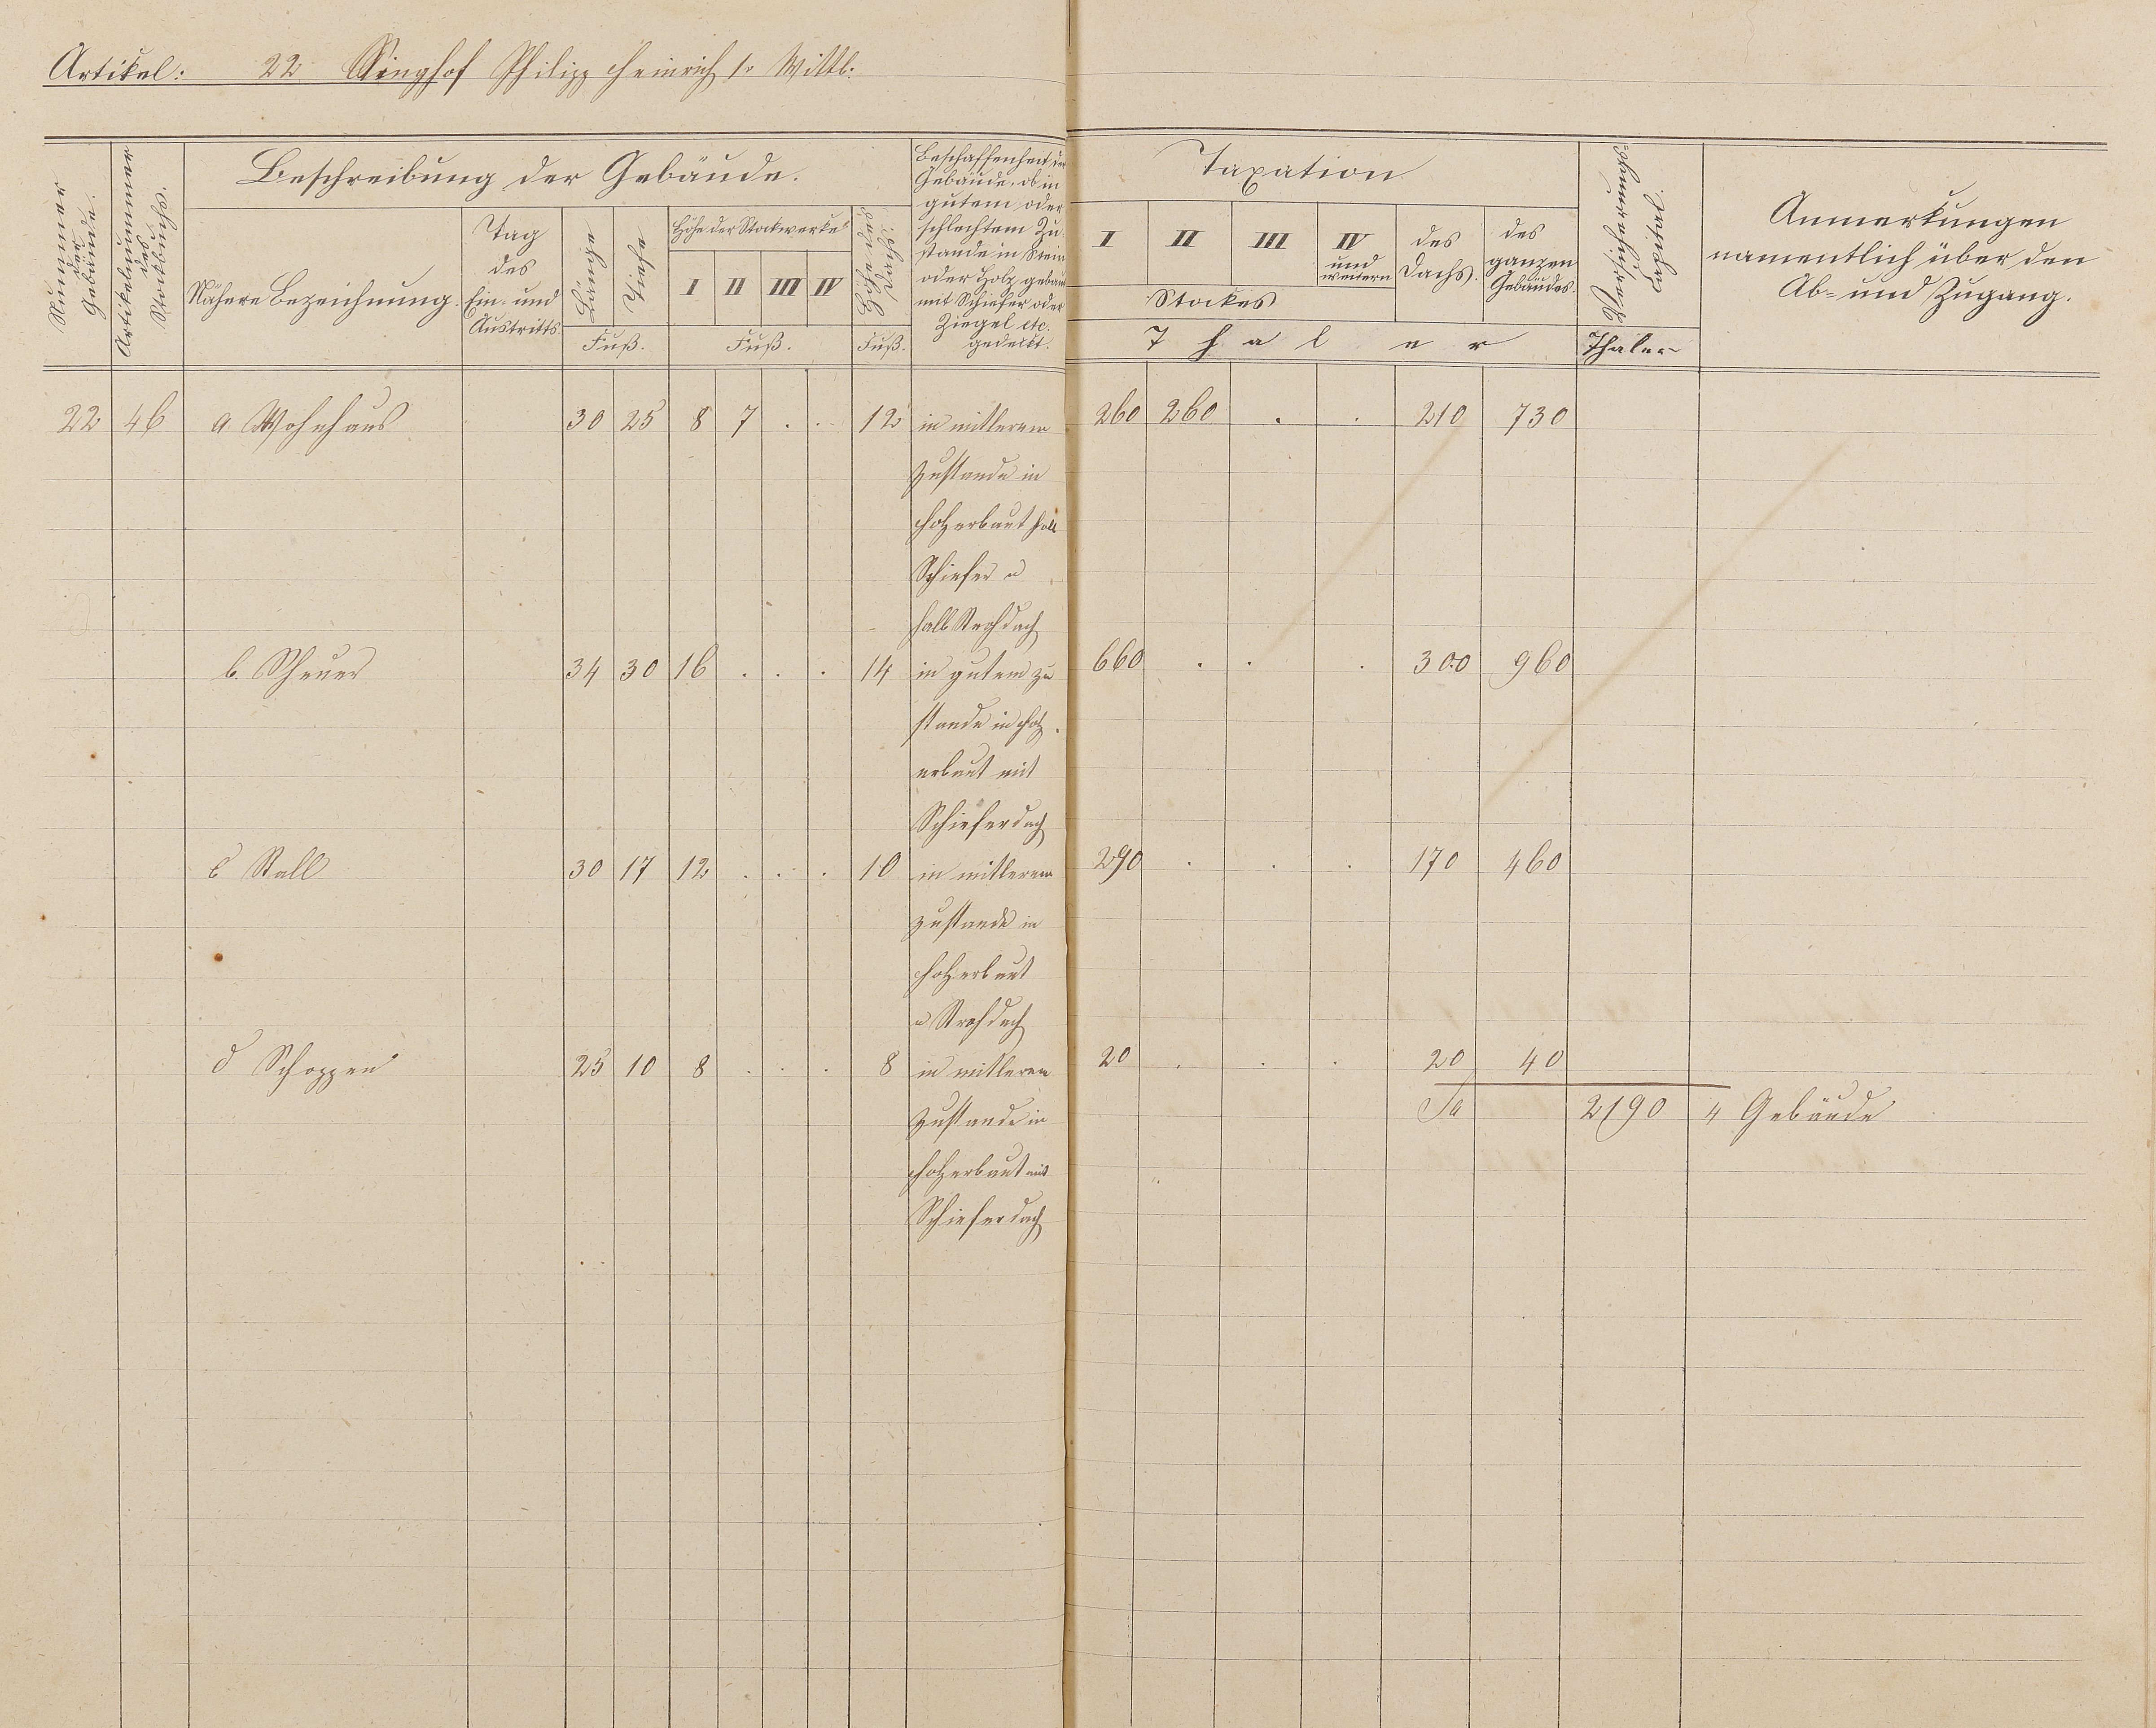 Artikel: 22 Singhof Philipp Heinrich Ir Wittb.
Nummer der Gebäude.
Artikelnummer des Stockbuchs.
Beschreibung der Gebäude.
Nähere Bezeichnung.
Tag des Ein- und Austritts
Länge
Tiefe
Fuß.
Höhe der Stockwerke
I II III IV
Fuß.
Höhe des Dachs.
Fuß.
Beschaffenheit der
Gebäude, ob in
gutem oder
schlechtem Zu-
stande in Stein
oder Holz gebaut
mit Schiefer oder
Ziegel etc.
gedeckt.
Taxation
I II III IV und weitern
Stockes
des Dachs.
des ganzen Gebäudes.
Thaler
Versicherungs-
Capital.
Thaler
Anmerkungen
namentlich über den
Ab- und Zugang.
22 46 a. Wohnhaus 30 25 8 7 . . 12 in mitlerem 260 260 . . 210 730
Zustande in
Holz erbaut halb
Schiefer u
halb Strohdach
b. Scheuer 34 30 16 . . . 14 in gutem Zu 660 . . . 300 960
stande in Holz
erbaut mit
Schieferdach
c Stall 30 17 12 . . . 10 in mitlerem 290 . . . 170 460
Zustande in
Holz erbaut
u Strohdach
d Schoppen 25 10 8 . . . 8 in mitlerem 20 . . . 20 40
Zustande in Sa 2190 4 Gebäude
Holz erbaut mit
Schieferdach